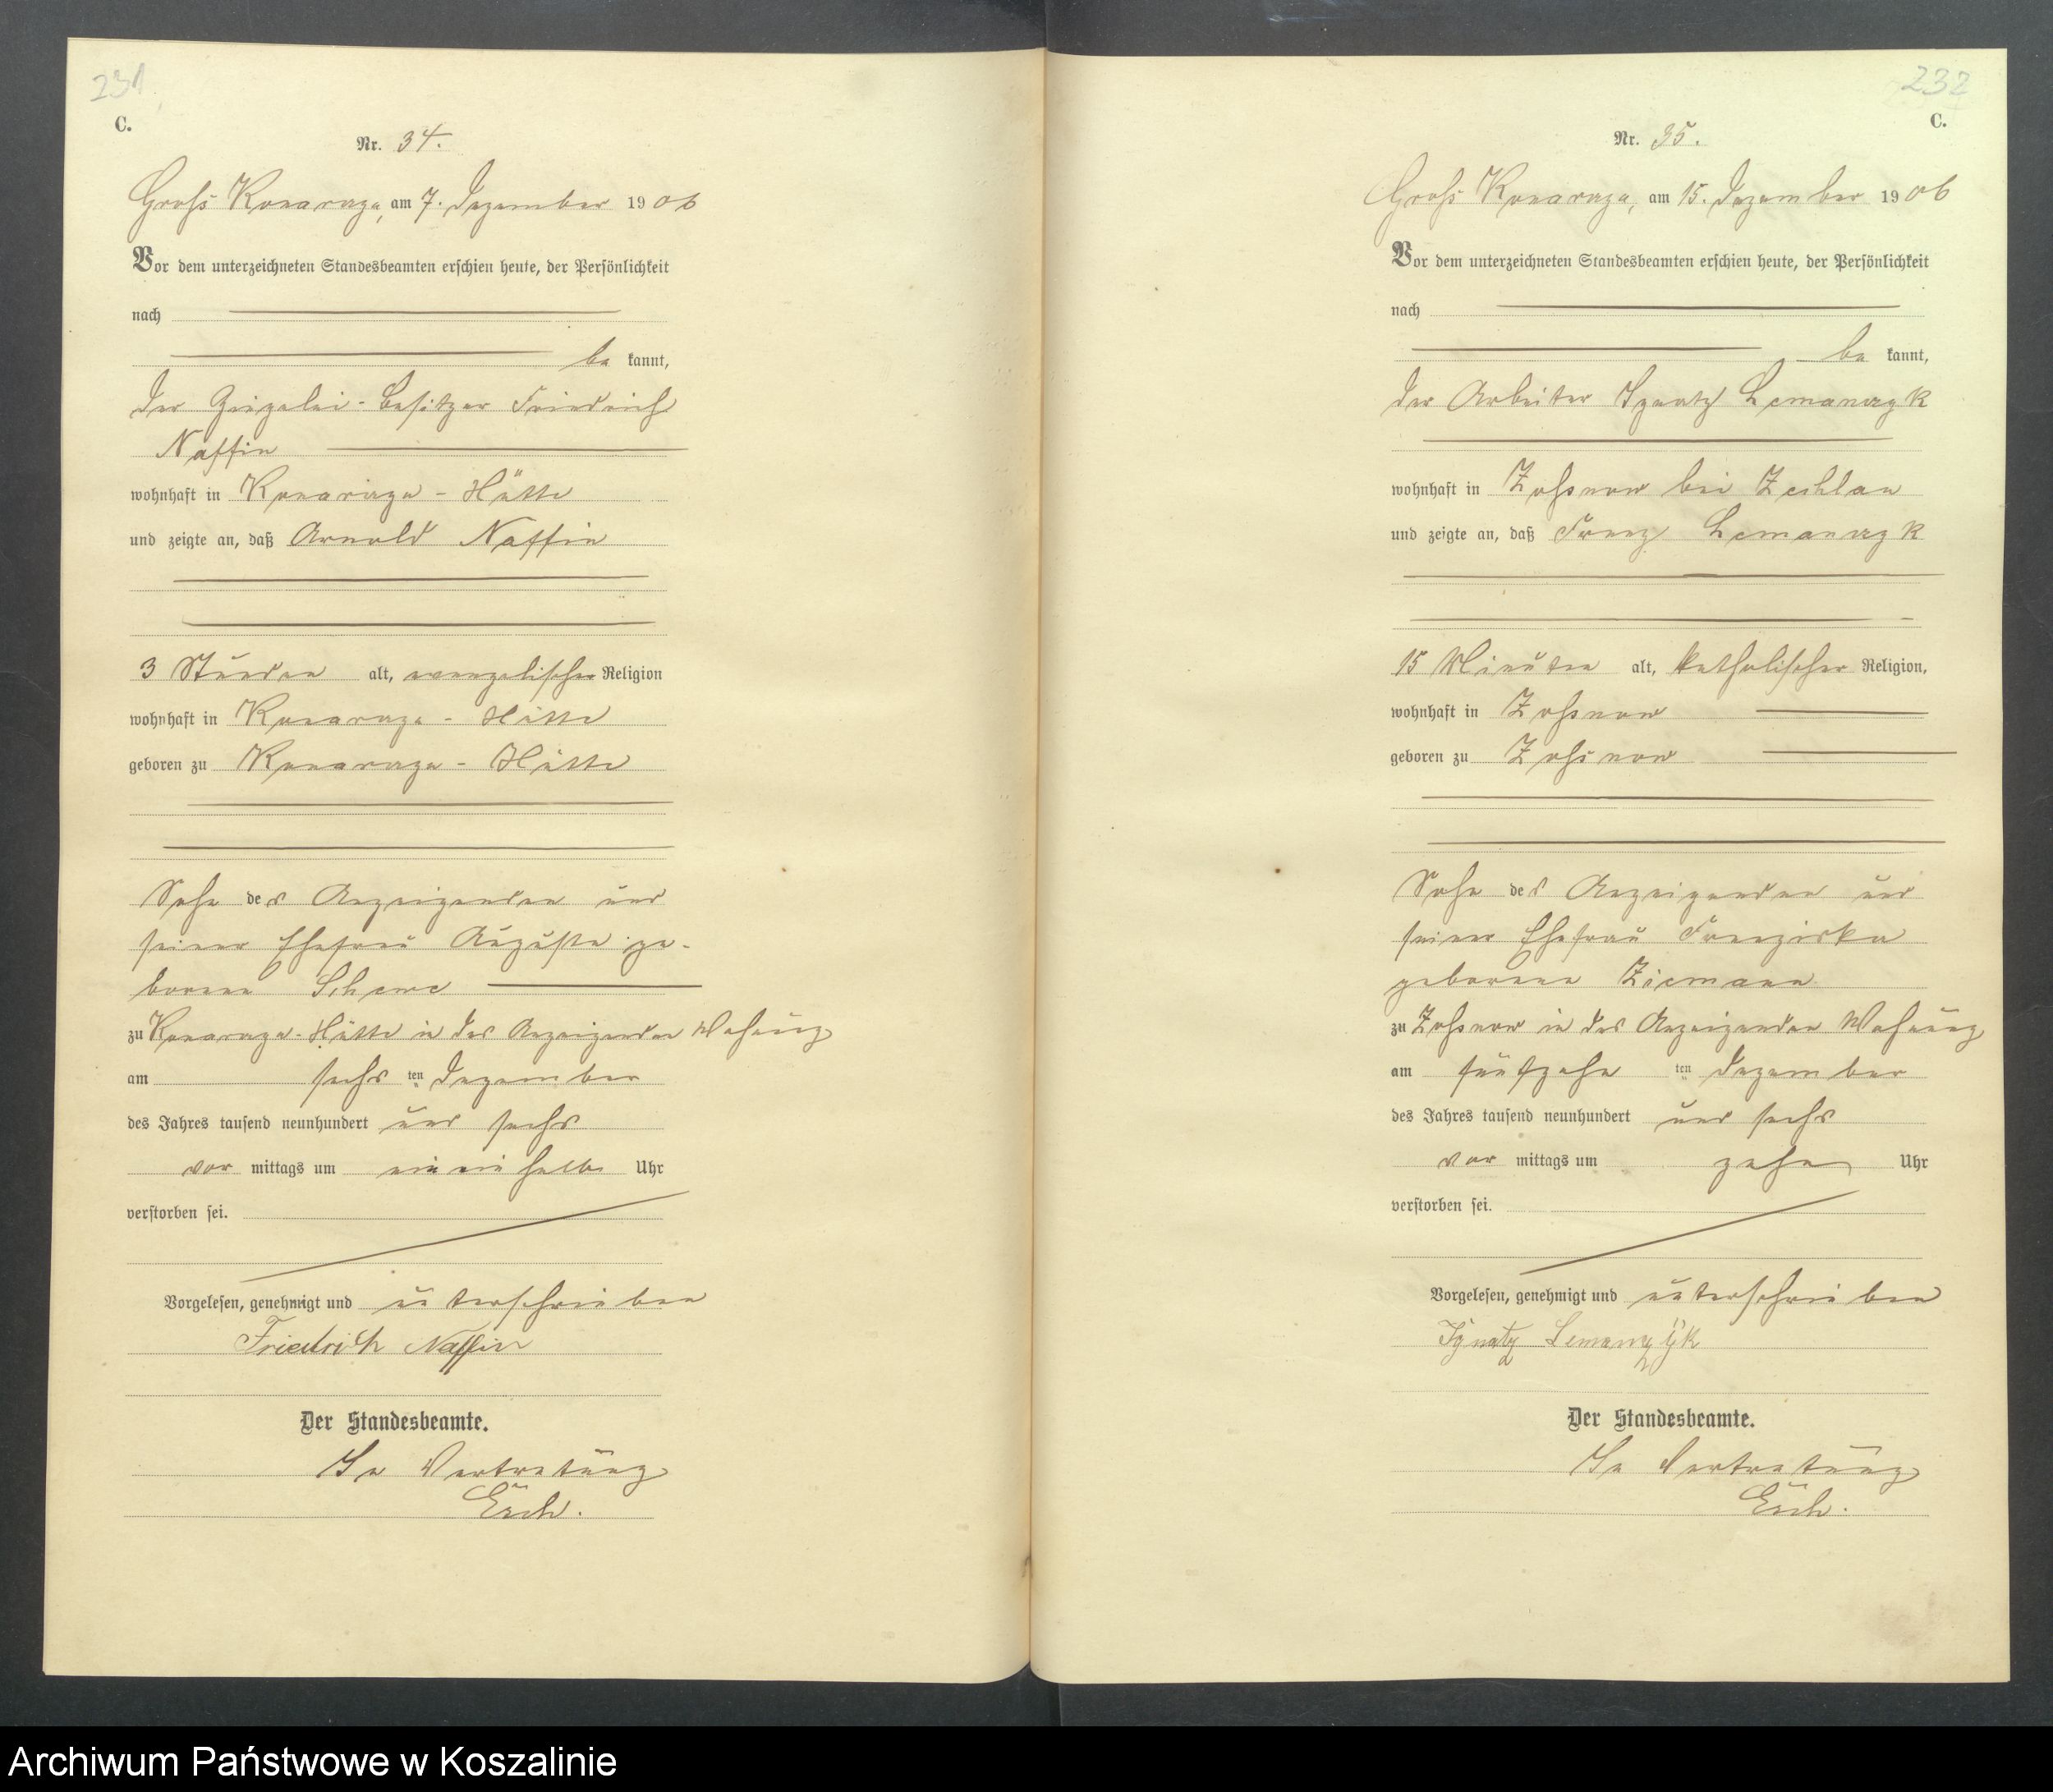 231
C.
Nr. 34.
Gross Konarzyn, am 7. Dezember 1906
Vor dem unterzeichneten Standesbeamten erschien heute, der Persönlichkeit
nach
be kannt,
der Ziegelei-Besitzer Friedrich
Naffin
wohnhaft in Hütte
und zeigte an, daß Arnold Naffin
3 Stunden alt, evangelischer Religion
wohnhaft in Hütte
geboren zu Hütte
Sohn des Anzeigenden und
seiner Ehefrau Auguste ge-
borene
zu Hütte in des Anzeigenden Wohnung
am sechs ten Dezember
des Jahres tausend neunhundert und sechs
vor mittags um ein ein halb Uhr
verstorben sei.
Vorgelesen, genehmigt und unterschrieben
Friedrich Naffin
Der Standesbeamte.
In Vertretung
232
C.
Nr. 35.
Gross Konarzyn, am 15. Dezember 1906
Vor dem unterzeichneten Standesbeamten erschien heute, der Persönlichkeit
nach
be kannt,
der Arbeiter Ignatz Lemanczyk
wohnhaft in Zossnow bei Zechlau
und zeigte an, daß Franz Lemanczyk
15 Minuten alt, katholischer Religion,
wohnhaft in Zossnow
geboren zu Zossnow
Sohn des Anzeigenden und
seiner Ehefrau Franziska
geborene Ziemann
zu Zossnow in des Anzeigenden Wohnung
am fünfzehn ten Dezember
des Jahres tausend neunhundert und sechs
vor mittags um zehn Uhr
verstorben sei.
Vorgelesen, genehmigt und unterschrieben
Ignatz Lemanczyk
Der Standesbeamte.
In Vertretung
Archiwum Państwowe w Koszalinie